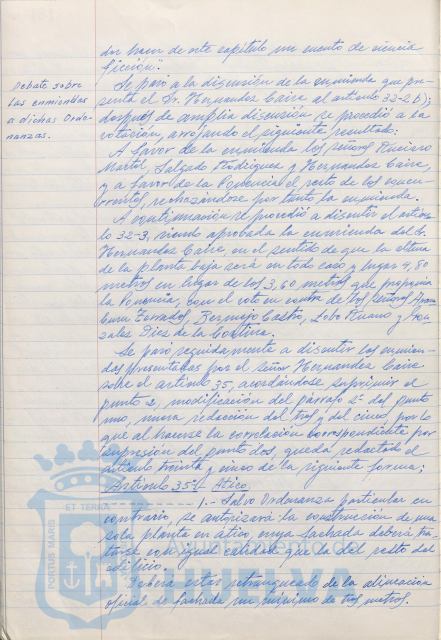 dor hacer de este capítulo un cuento de ciencia
ficción".
Debate sobre
las enmiendas
a dichas Orde-
nanzas.
Se pasó a la discusión de la enmienda que pre-
senta el Sr. Hernandez Caire al artículo 32-2 b);
después de amplia discusión se procedió a la
votación, arrojando el siguiente resultado:
A favor de la enmienda los señores
Martel, Salgado Rodriguez y Hernandez Caire,
y a favor de la Ponencia el resto de los concu-
rrentes, rechazándose por tanto la enmienda.
A continuación se procedió a discutir el artícu-
lo 32-3, siendo aprobada la enmienda del Sr.
Hernandez Caire, en el sentido de que la altura
de la planta baja será en todo caso y lugar 4,80
metros en lugar de los 3,60 metros que proponía
la Ponencia, con el voto en contra de los señores
Terrados, Bermejo Castro, Lobo Ruano y Gon-
zales Diez de la Cortina.
Se pasó seguidamente a discutir las enmien-
das presentadas por el señor Hernandez Caire
sobre el artículo 35, acordándose suprimir el
punto 2, modificación del párrafo 2º del punto
uno, nueva redacción del tres y del cinco, por lo
que al hacerse la correlación correspondiente por
supresión del punto dos, queda redactado el
artículo treinta y cinco de la siguiente forma;
Artículo 35º/- Atico.
1.- Salvo Ordenanza particular en
contrario, se autorizará la construcción de una
sola planta en ático, cuya fachada deberá tra-
tarse con igual calidad que la del resto del
edificio.
Deberá estar retranqueado de la alineación
oficial de fachada un mínimo de tres metros.
PORTUS MARIS
ET TERRAE
HUELVA